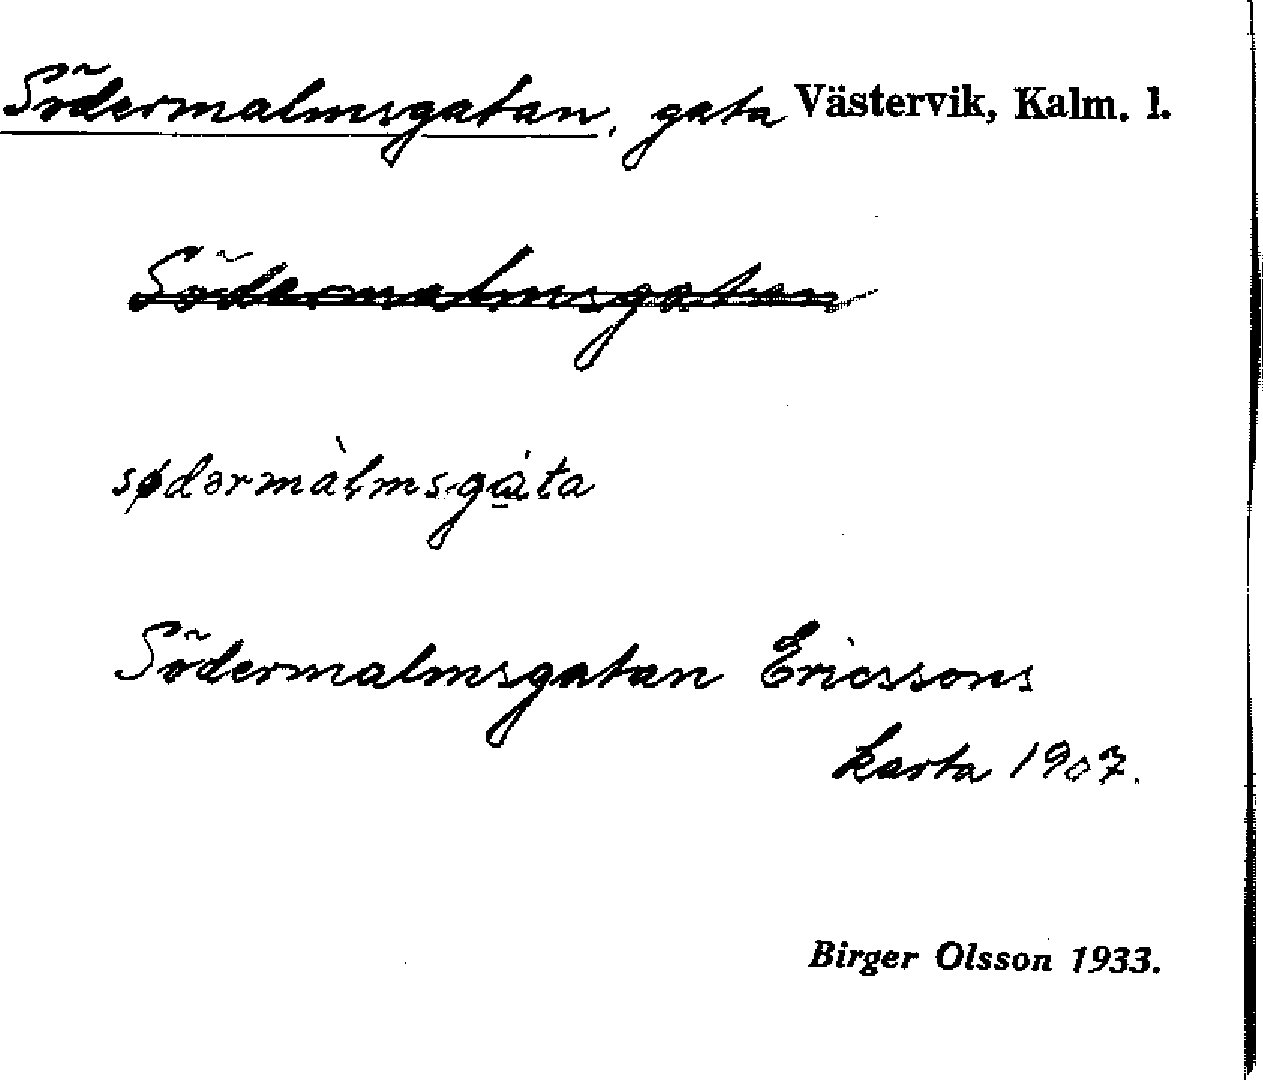 Södermalmsgatan, gata Västervik, Kalm. l.
Södermalmsgatan
sødərmàlmsgàta
Södermalmsgatan Ericssons
karta 1907.
Birger Olsson 1933.